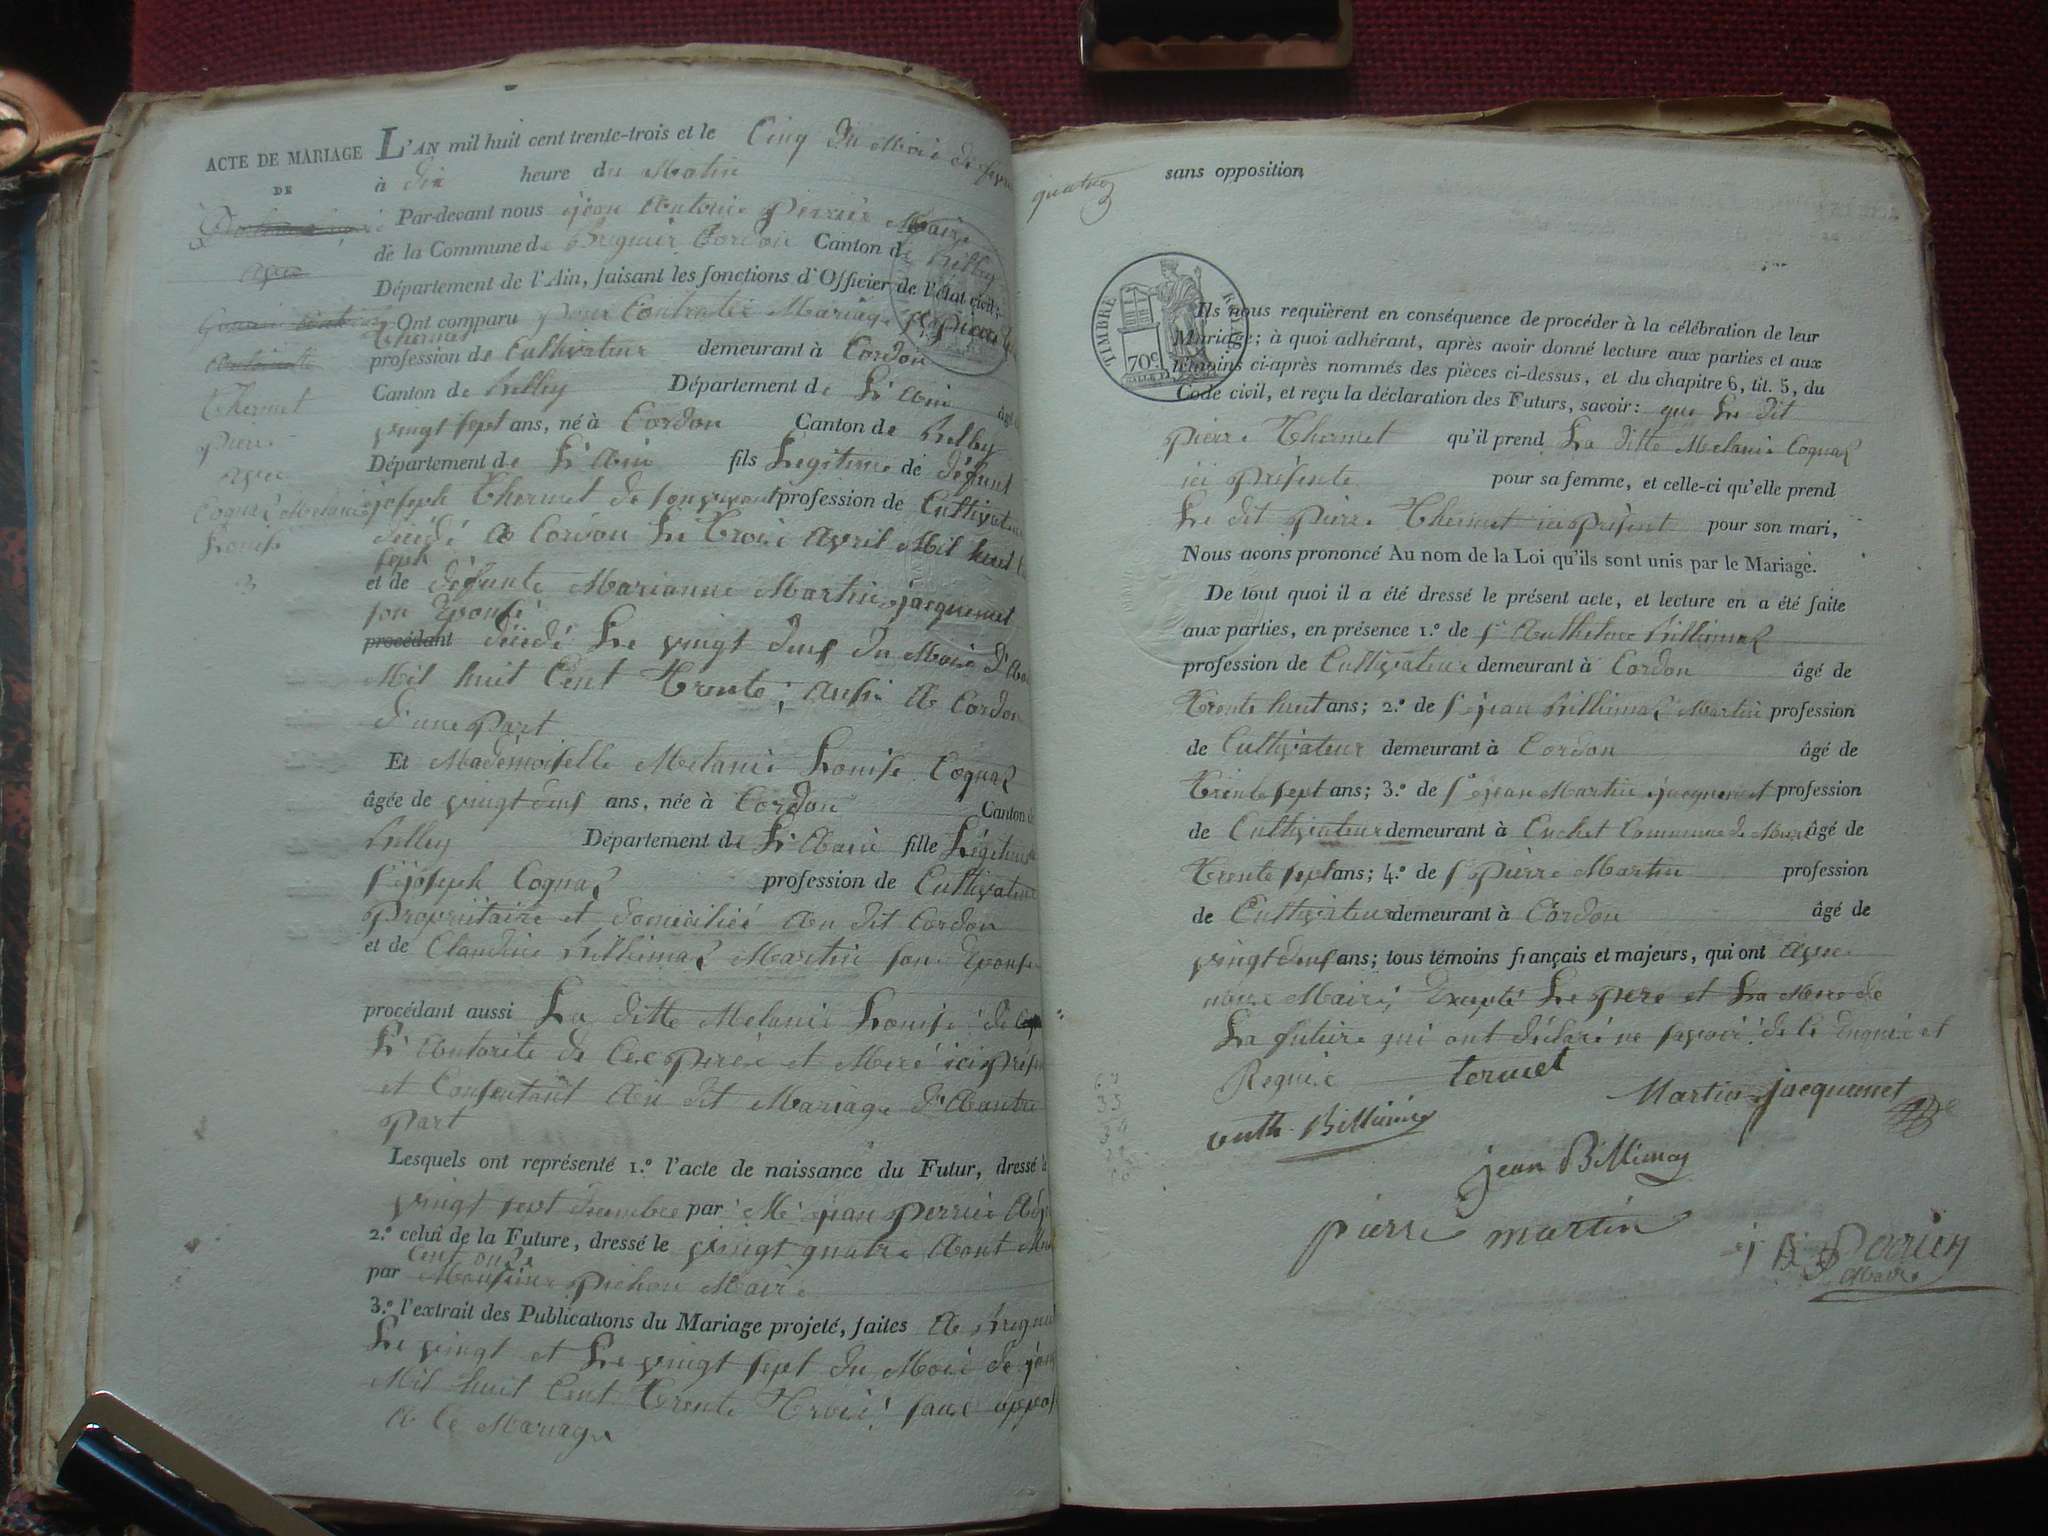 ACTE DE MARIAGE
DE
avec
Thermet
pierre
avec
Cognaz Melanie
Louise
L'AN mil huit cent trente-trois et le Cinq du Mois de
à dix heure du Matin
Par-devant nous jean Antoine perrier Maire
de la Commune de Bregnier Cordon Canton de Belley
Département de l'Ain, faisant les fonctions d'Officier de l'état civil;
Ont comparu pour Contracter Mariage Sr pierre
Thermet
profession de Cultivateur demeurant à Cordon
Canton de Belley Département de L'Ain âgé
vingt sept ans, né à Cordon Canton de Belley
Département de L'Ain fils Legitime de défunt
joseph Thermet de son vivant profession de Cultivateur
décédé a Cordon Le Trois Avril Mil huit
sept
et de défunte Marianne Martin jacquemet
son Epouse
procédant décédé Le vingt deux du Mois
Mil huit Cent Trente; aussi a Cordon
d'une part
Et Mademoiselle Melanie Louise Cognaz
âgée de vingt deux ans, née à Cordon Canton
Belley Département de L'Ain fille Légitime
Sr joseph Cognaz profession de Cultivateur
propriétaire et domicilié Au dit Cordon
et de Claudine Billiemaz Martin son Epouse
procédant aussi La ditte Melanie Louise de
L'Autorité de Ces pere et Mere ici
et Consentant Au dit Mariage d'Autre
part
Lesquels ont représenté 1.º l'acte de naissance du Futur, dressé le
vingt sept par Mr jean perrier
2.º celui de la Future, dressé le vingt quatre Aout
Cent onze
par Monsieur pichon Maire
3.º l'extrait des Publications du Mariage projeté, faites A
Le vingt et Le vingt sept du Mois de
Mil huit Cent Trente Trois sans
A Ce Mariage
quatre
sans opposition
TIMBRE ROYAL
70c
Ils nous requièrent en conséquence de procéder à la célébration de leur
Mariage; à quoi adhérant, après avoir donné lecture aux parties et aux
témoins ci-après nommés des pièces ci-dessus, et du chapitre 6, tit. 5, du
Code civil, et reçu la déclaration des Futurs, savoir: que Le dit
pierre Thermet qu'il prend La ditte Melanie Cognaz
ici présente pour sa femme, et celle-ci qu'elle prend
Le dit pierre Thermet ici présent pour son mari,
Nous avons prononcé Au nom de la Loi qu'ils sont unis par le Mariage.
De tout quoi il a été dressé le présent acte, et lecture en a été faite
aux parties, en présence 1.º de Sr Anthelme Billiemaz
profession de Cultivateur demeurant à Cordon âgé de
Trente huit ans; 2.º de Sr jean Billiemaz Martin profession
de Cultivateur demeurant à Cordon âgé de
Trente sept ans; 3.º de Sr jean Martin jacquemet profession
de Cultivateur demeurant à Cuchet Commune de âgé de
Trente sept ans; 4.º de Sr pierre Martin profession
de Cultivateur demeurant à Cordon âgé de
vingt deux ans; tous témoins français et majeurs, qui ont Avec
nous Maire, Excepté Le pere et La Mere de
La future qui ont déclaré ne savoir de Ce Enquis et
Requis
termet
Martin jacquemet
anth. Billiemaz
jean Billiemaz
pierre martin
Perrier
Maire